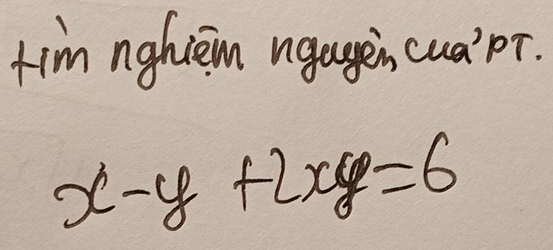 tìm nghiệm nguyên của PT.
x - y + 2xy = 6